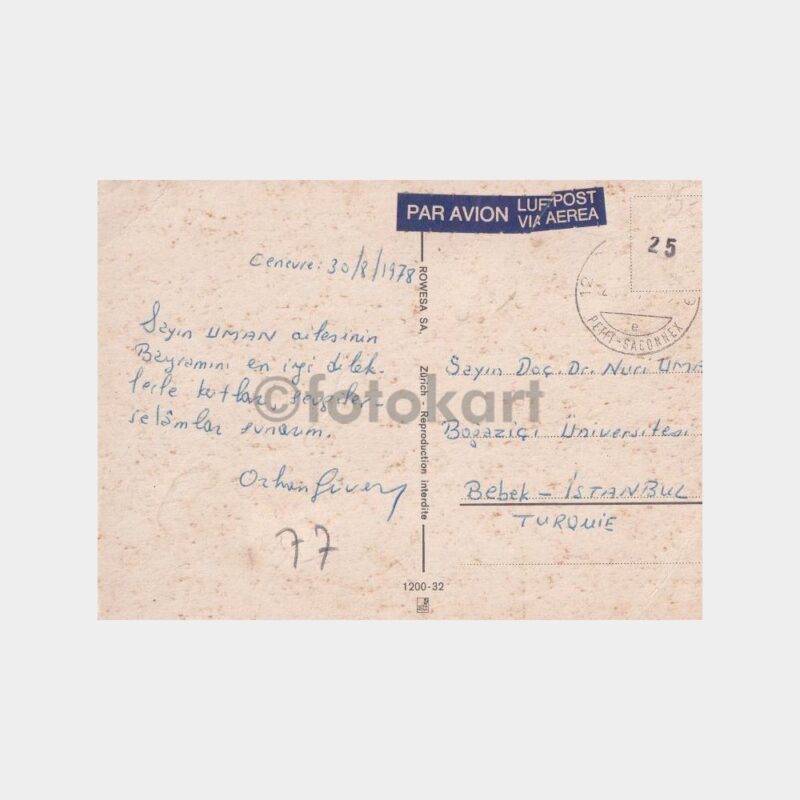 PAR AVION LUFTPOST
VIA AEREA
25
12
PETIT-SACONNEX
e
Cenevre: 30/8/1978
Sayın UMAN ailesinin
Bayramını en iyi dilek-
lerle kutlar, sevgiler-
selâmlar sunarım.
Orhan Güvenç
77
ROWESA SA, Zürich - Reproduction interdite
1200-32
Sayın Doç. Dr. Nuri UMA
Boğaziçi Üniversitesi
Bebek - İSTANBUL
TURQUIE
©fotokart